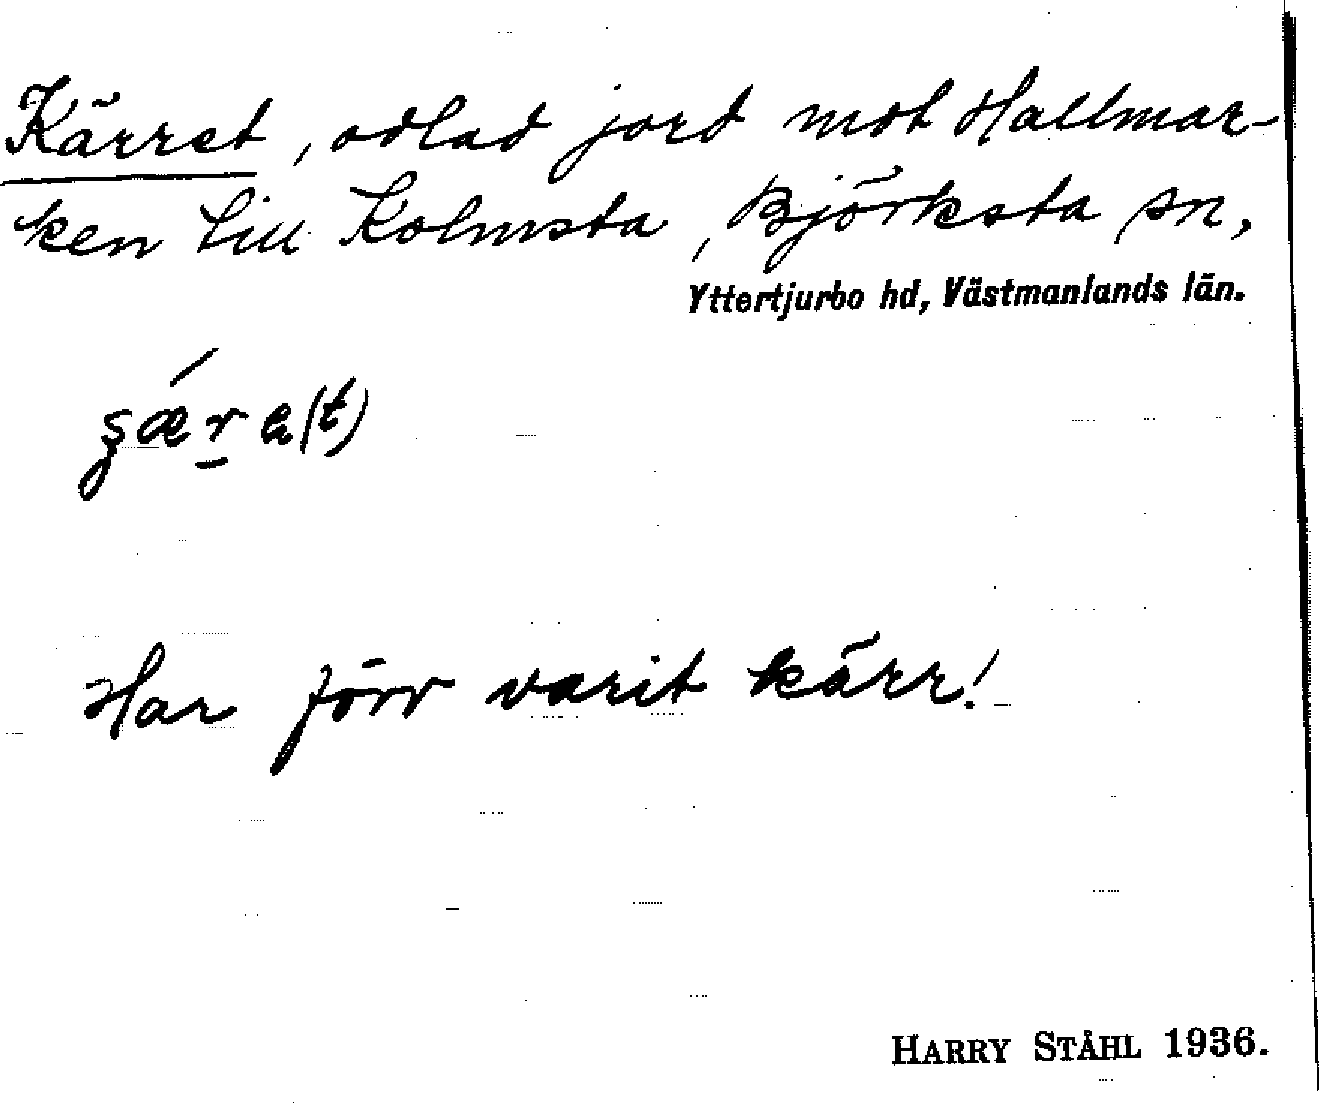 Kärret, odlad jord mot Hallmar-
ken till Kolmsta, Björksta sn,
Yttertjurbo hd, Västmanlands län.
Har förr varit kärr!
HARRY STÅHL 1936.